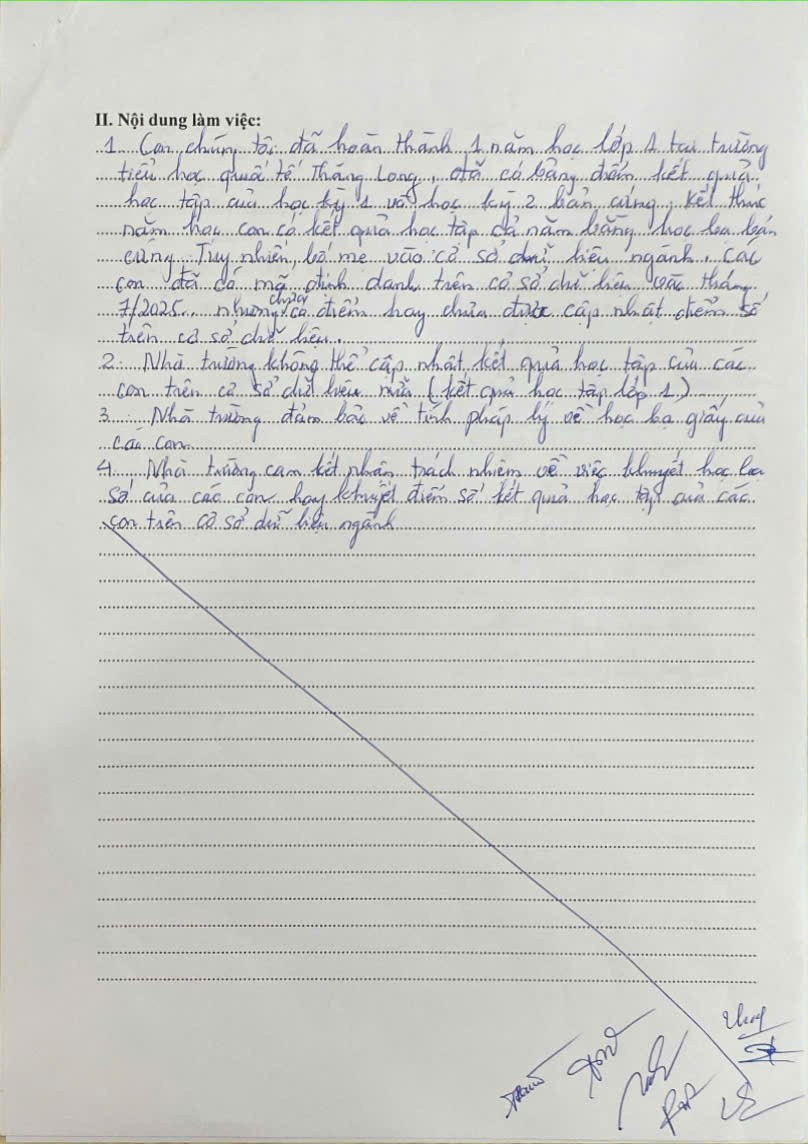 II. Nội dung làm việc:
1. Con chúng tôi đã hoàn thành 1 năm học lớp 1 tại trường
tiểu học quốc tế Thăng Long, đã có bảng điểm kết quả
học tập của học kỳ 1 và học kỳ 2 bản cứng. Kết thúc
năm học con có kết quả học tập cả năm bằng học bạ bản
cứng. Tuy nhiên, bố mẹ vào cơ sở dữ liệu ngành. Các
con đã có mã định danh trên cơ sở dữ liệu vào tháng
7/2025. nhưng chưa có điểm hay chưa được cập nhật điểm số
trên cơ sở dữ liệu.
2. Nhà trường không thể cập nhật kết quả học tập của các
con trên cơ sở dữ liệu nữa (kết quả học tập lớp 1)
3. Nhà trường đảm bảo về tính pháp lý về học bạ giấy của
các con.
4. Nhà trường cam kết nhận trách nhiệm về việc khuyết học bạ
số của các con hay khuyết điểm số kết quả học tập của các
con trên cơ sở dữ liệu ngành